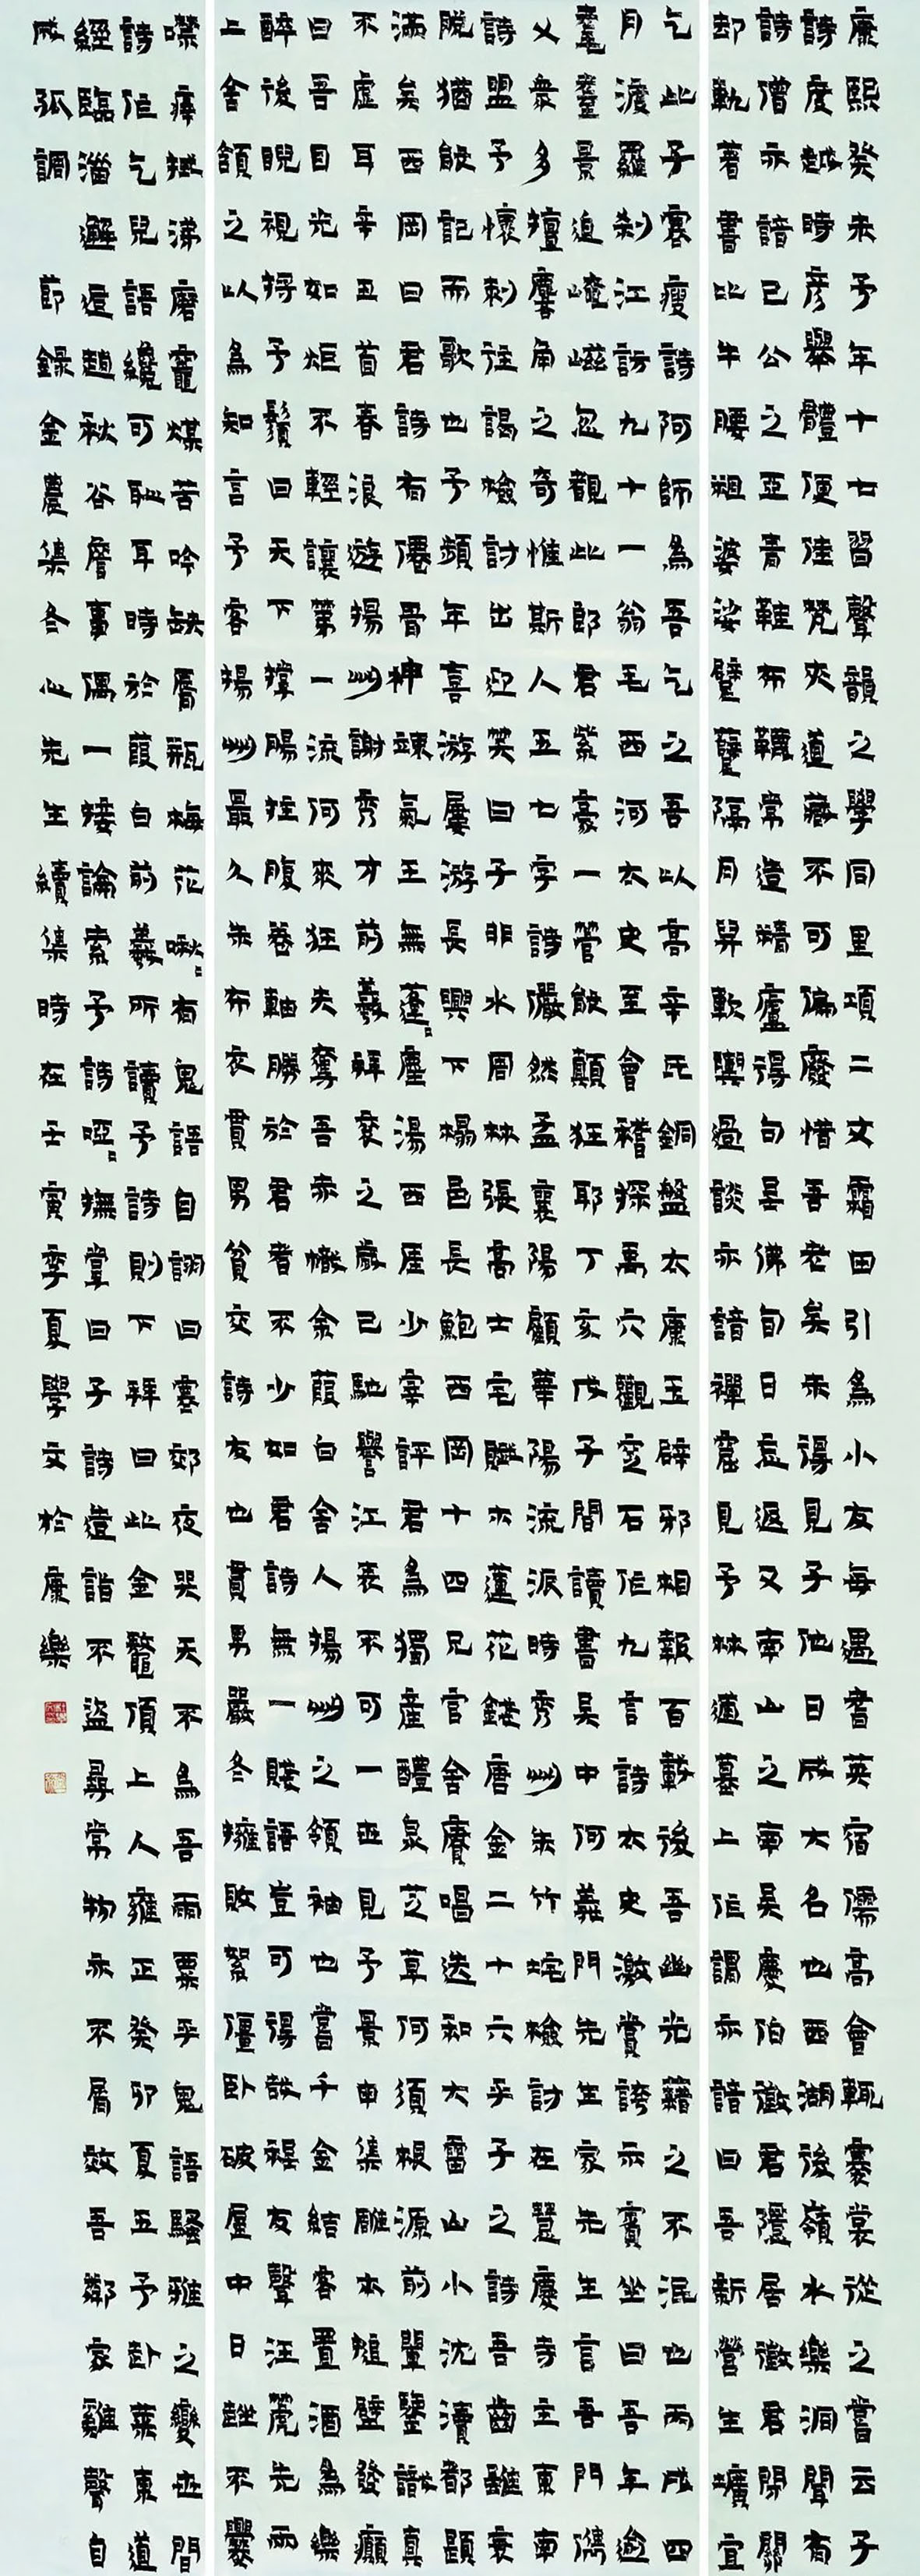 康熙癸未予年十七習聲韻之學同里項二文霜田引為小友每遇耆英宿儒高會輒褰裳從之嘗云子
詩度越時彥舉體便佳梵夾道藏不可偏廢惜吾老矣未得見子他日成大名也西湖後嶺水樂洞聞有
詩僧亦諳己公之亞青鞋布韈常造精廬得句呈佛旬日忘返又南山之南吳慶伯徵君隱居徵君閉關
卻軌著書比牛腰粗婆娑躄躠隔月舁軟輿過談亦諳禪窟見予林逋墓上作謂亦諳曰吾新營生壙宜
乞此子寒瘦詩阿師為吾乞之吾以高辛氏銅盤太康玉辟邪相報百載後吾幽光藉之不泯也丙戌四
月渡羅剎江訪九十一翁毛西河太史至會稽探禹穴觀窆石作九言詩太史激賞誇示賓坐曰吾年逾
耄耋景迫崦嵫忽觀此郎君紫豪一管能顛狂耶丁亥戊子間讀書吳中何義門先生家先生言吾門儁
乂眾多擅麋角之奇惟斯人五七字詩儼然孟襄陽顧華陽流派時秀州朱竹垞檢討在慧慶寺主東南
詩盟予懷刺往謁檢討出迎笑曰子非水周林張高士宅賦木蓮花錢唐金二十六乎子之詩吾齒雖衰
脫猶能記而歌也予頻年喜游屢游長興下榻邑長鮑西岡十四兄官舍賡唱迭和大雷山小沈瀆都題
滿矣西岡曰君詩有僊骨神竦氣王無蓬蓬塵湯西厓少宰評君為獨產醴泉芝草何須根源前輩鑒識真
不虛耳辛丑首春浪遊揚州謝秀才前羲拜袞之歲已馳譽江表不可一世見予景申集雕本槌壁發癲
曰吾目光如炬不輕讓第一流何來狂夫奪吾赤幟余葭白舍人揚州之領袖也嘗千金結客置酒為樂
醉後睨視捋予鬚曰天下撐腸拄腹卷軸勝於君者不少如君詩無一賤語豈可得哉程友聲汪麓先兩
上舍頷之以為知言予客揚州最久朱布衣貫男貧交詩友也貫男嚴冬擁敗絮僵臥破屋中日趖不爨
噤瘁沸磨竈煤苦吟缺脣瓶梅花啾啾有鬼語自詡曰寒郊夜哭天不為吾雨粟乎鬼語騷雅之變世間
詩作乞兒語纔可恥耳時於葭白前羲所讀予詩則下拜曰此金鼇頂上人雍正癸卯夏五予赴萊東道
經臨淄邂逅趙秋谷詹事隅一矮論索予詩啞啞撫掌曰子詩造詣不盜尋常物亦不屑效吾鄰家雞聲自
成孤調 節錄金農集冬心先生續集時在壬寅季夏學文於康樂